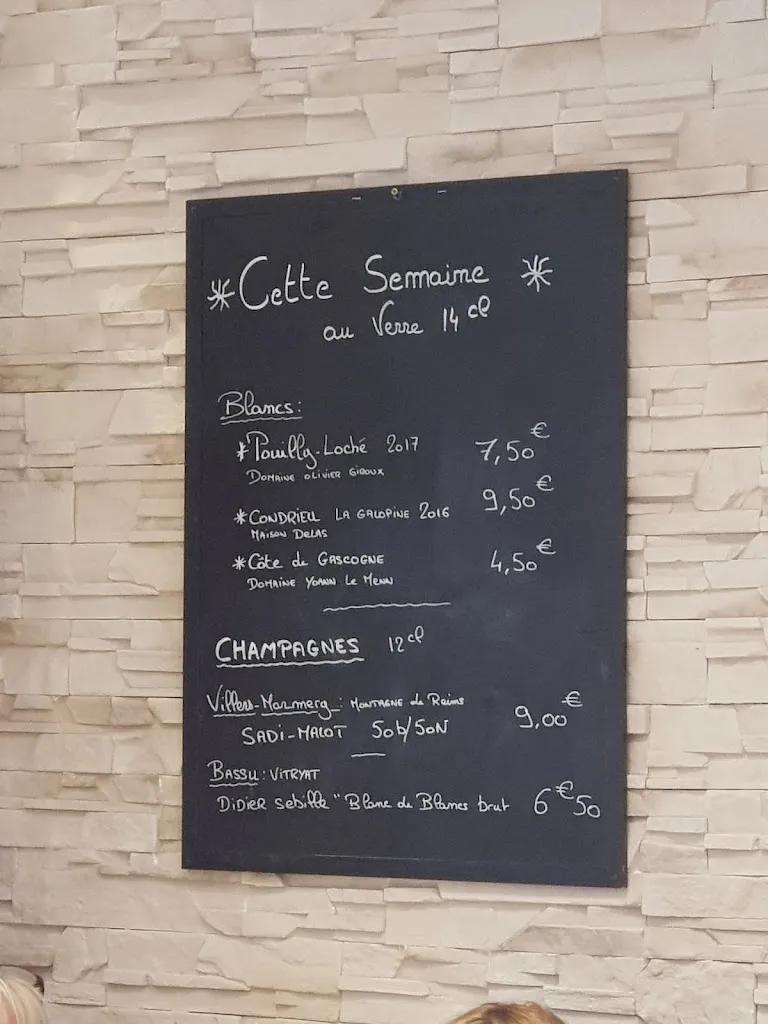 * Cette Semaine *
au Verre 14 cl
Blancs:
* Pouilly-Loché 2017 7,50€
Domaine Olivier Giroux
* CONDRIEU LA GALOPINE 2016 9,50€
MAISON DELAS
* Côte de GASCOGNE 4,50€
Domaine Yoann Le Menn
CHAMPAGNES 12 cl
Villers-Marmery: MONTAGNE de Reims
SADI-MALOT 50b/50N 9,00€
BASSU: VITRYAT
Didier sebille "Blanc de Blancs brut 6€50